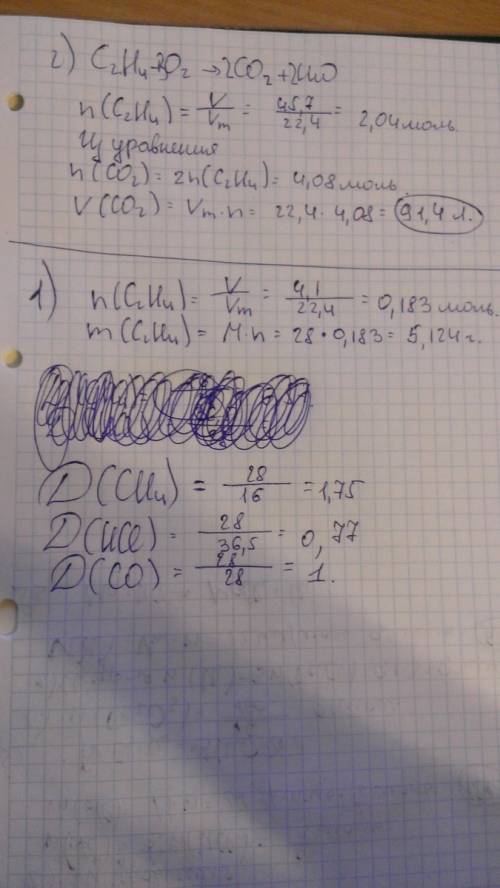 2) C₂H₄+3O₂ → 2CO₂ + 2H₂O
n(C₂H₄) = V/Vm = 45,7/22,4 = 2,04 моль.
Из уравнения
n(CO₂) = 2n(C₂H₄) = 4,08 моль.
V(CO₂) = Vm·n = 22,4 · 4,08 = 91,4 л.
1) n(C₂H₄) = V/Vm = 4,1/22,4 = 0,183 моль.
m(C₂H₄) = M·n = 28 · 0,183 = 5,124 г.
D(CH₄) = 28/16 = 1,75
D(HCl) = 28/36,5 = 0,77
D(CO) = 28/28 = 1.